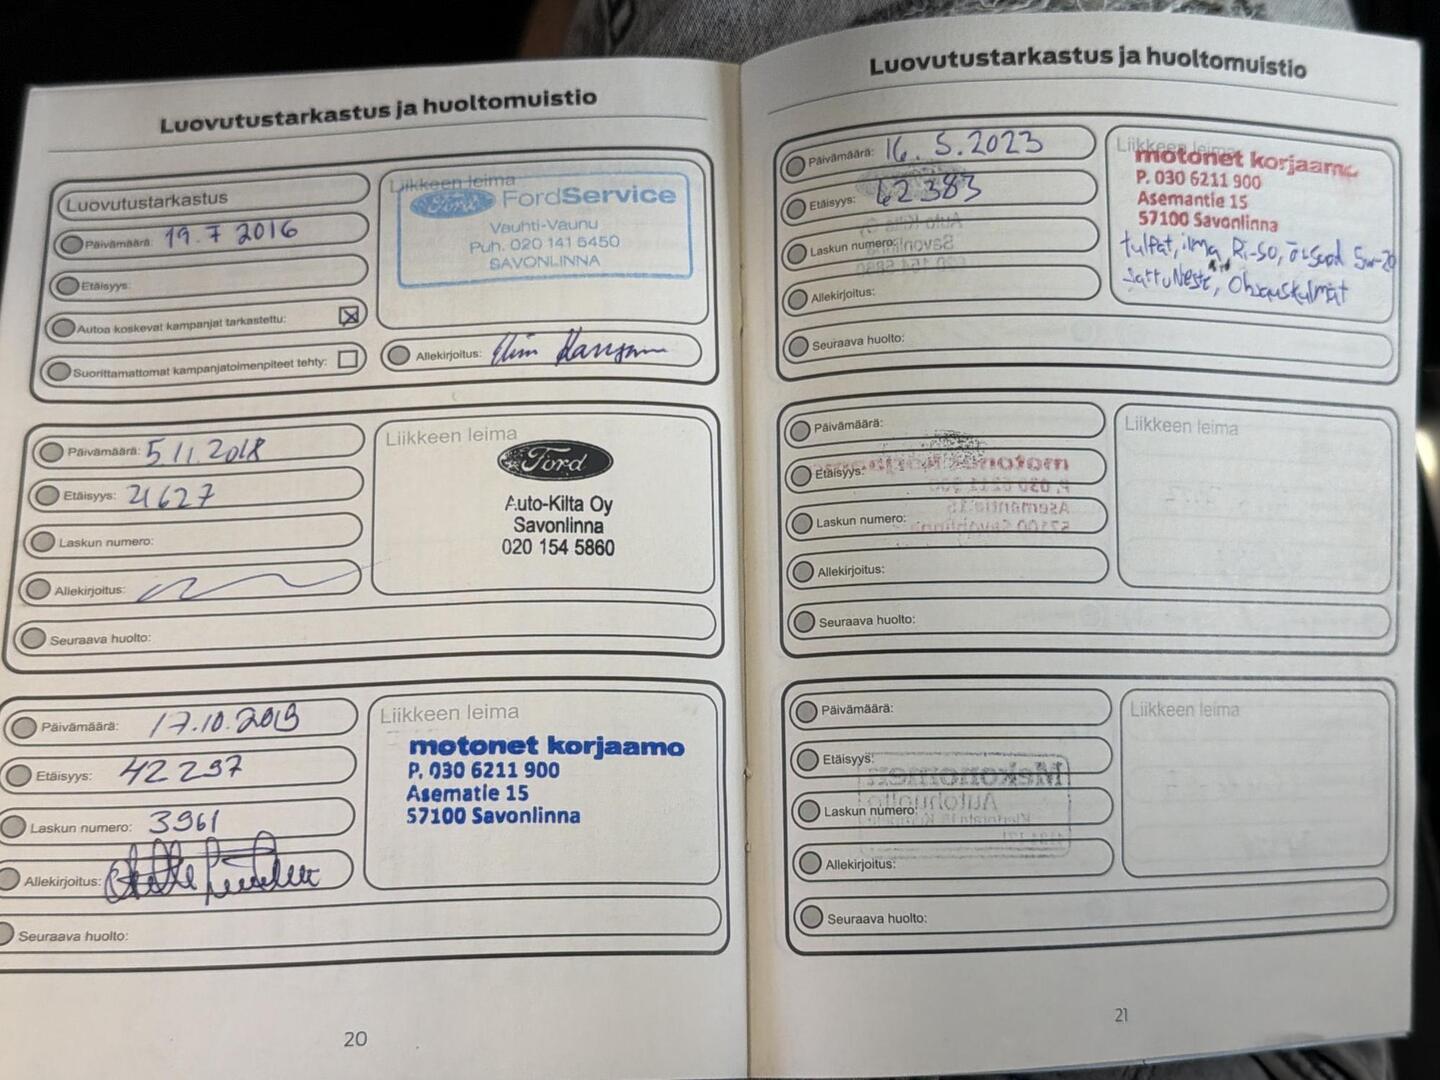 Luovutustarkastus ja huoltomuistio
Luovutustarkastus
Päivämäärä: 19.7 2016
Etäisyys:
Autoa koskevat kampanjat tarkastettu:
Suorittamattomat kampanjatoimenpiteet tehty:
Liikkeen leima
Ford FordService
Vauhti-Vaunu
Puh. 020 141 5450
SAVONLINNA
Allekirjoitus:
Päivämäärä: 5.11.2018
Etäisyys: 21627
Laskun numero:
Allekirjoitus:
Seuraava huolto:
Liikkeen leima
Ford
Auto-Kilta Oy
Savonlinna
020 154 5860
Päivämäärä: 17.10.2019
Etäisyys: 42297
Laskun numero: 3961
Allekirjoitus:
Seuraava huolto:
Liikkeen leima
motonet korjaamo
P. 030 6211 900
Asematie 15
57100 Savonlinna
20
Luovutustarkastus ja huoltomuistio
Päivämäärä: 16.5.2023
Etäisyys: 62383
Laskun numero:
Allekirjoitus:
Seuraava huolto:
Liikkeen leima
motonet korjaamo
P. 030 6211 900
Asemantie 15
57100 Savonlinna
tulpat, ilma, Ri-so,
Ohjauskulmat
Päivämäärä:
Etäisyys:
Laskun numero:
Allekirjoitus:
Seuraava huolto:
Liikkeen leima
Päivämäärä:
Etäisyys:
Laskun numero:
Allekirjoitus:
Seuraava huolto:
Liikkeen leima
21